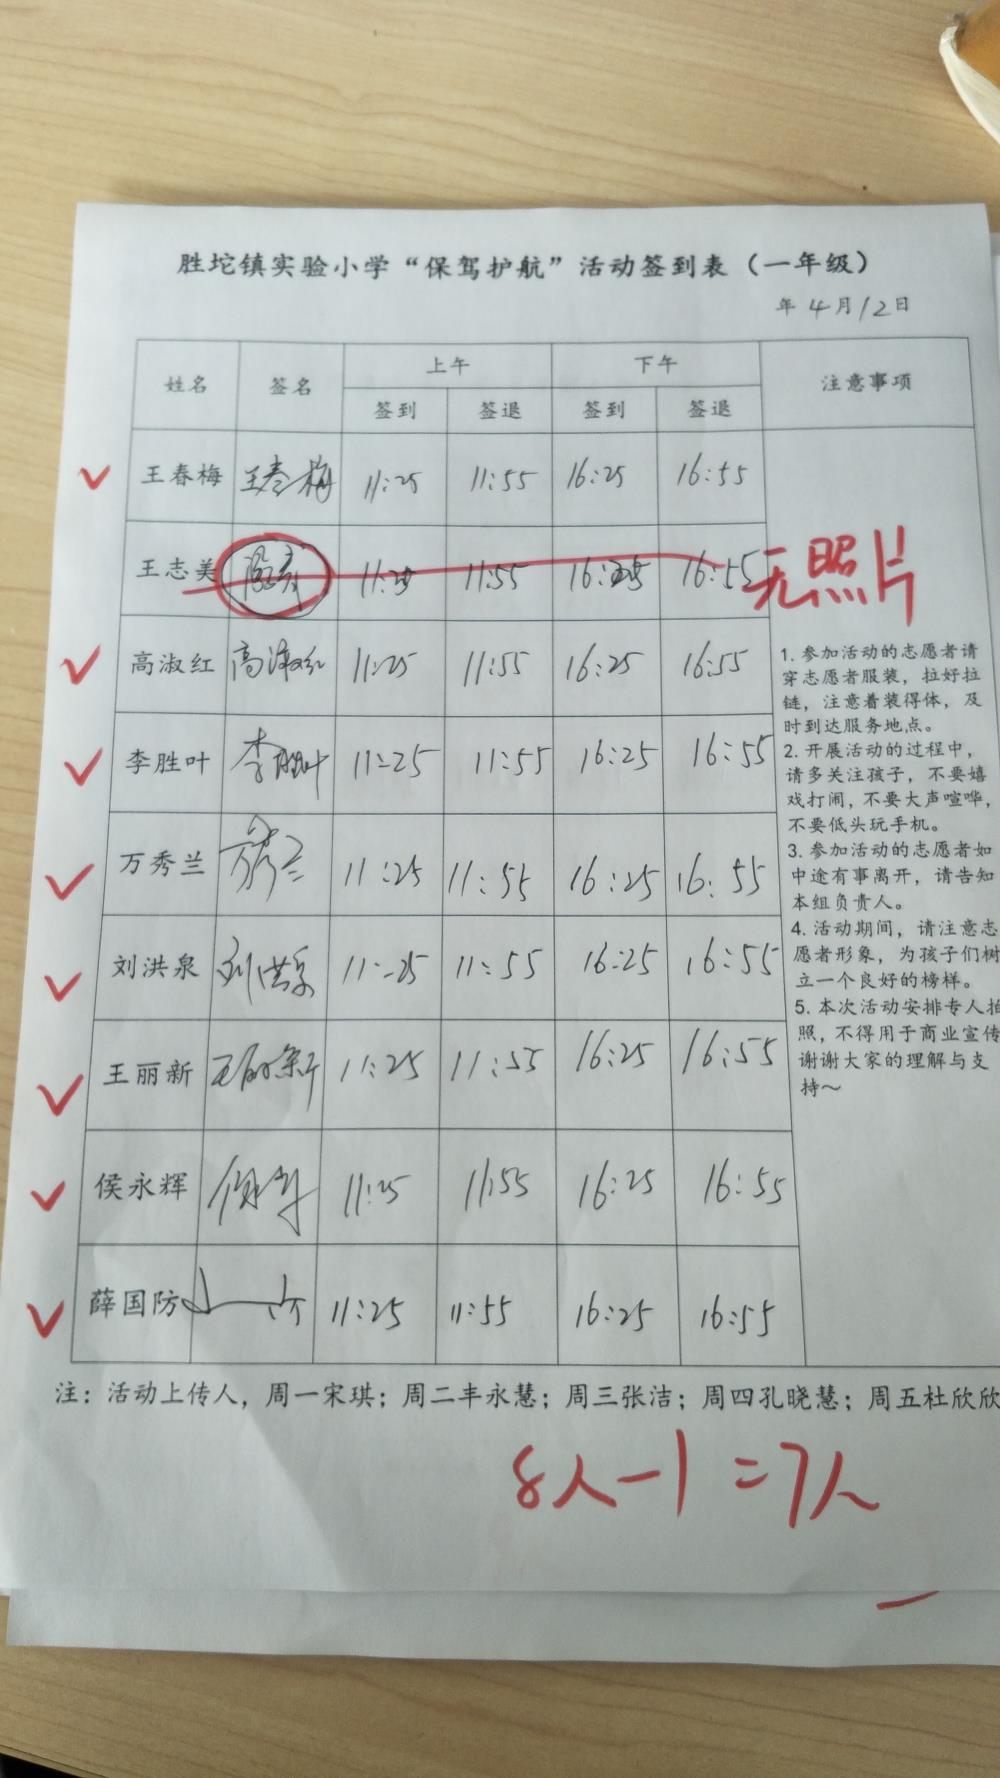 胜坨镇实验小学“保驾护航”活动签到表（一年级）
年 4月12日
姓名 签名 上午 下午 注意事项
签到 签退 签到 签退
王春梅 王春梅 11:25 11:55 16:25 16:55
王志美 11:25 11:55 16:25 16:55 无照片
高淑红 高淑红 11:25 11:55 16:25 16:55
李胜叶 李胜叶 11:25 11:55 16:25 16:55
万秀兰 万秀兰 11:25 11:55 16:25 16:55
刘洪泉 刘洪泉 11:25 11:55 16:25 16:55
王丽新 王丽新 11:25 11:55 16:25 16:55
侯永辉 11:25 11:55 16:25 16:55
薛国防 11:25 11:55 16:25 16:55
1. 参加活动的志愿者请
穿志愿者服装，拉好拉
链，注意着装得体，及
时到达服务地点。
2. 开展活动的过程中，
请多关注孩子，不要嬉
戏打闹，不要大声喧哗，
不要低头玩手机。
3. 参加活动的志愿者如
中途有事离开，请告知
本组负责人。
4. 活动期间，请注意志
愿者形象，为孩子们树
立一个良好的榜样。
5. 本次活动安排专人拍
照，不得用于商业宣传
谢谢大家的理解与支
持～
注：活动上传人，周一宋琪；周二丰永慧；周三张洁；周四孔晓慧；周五杜欣欣
8人-1=7人